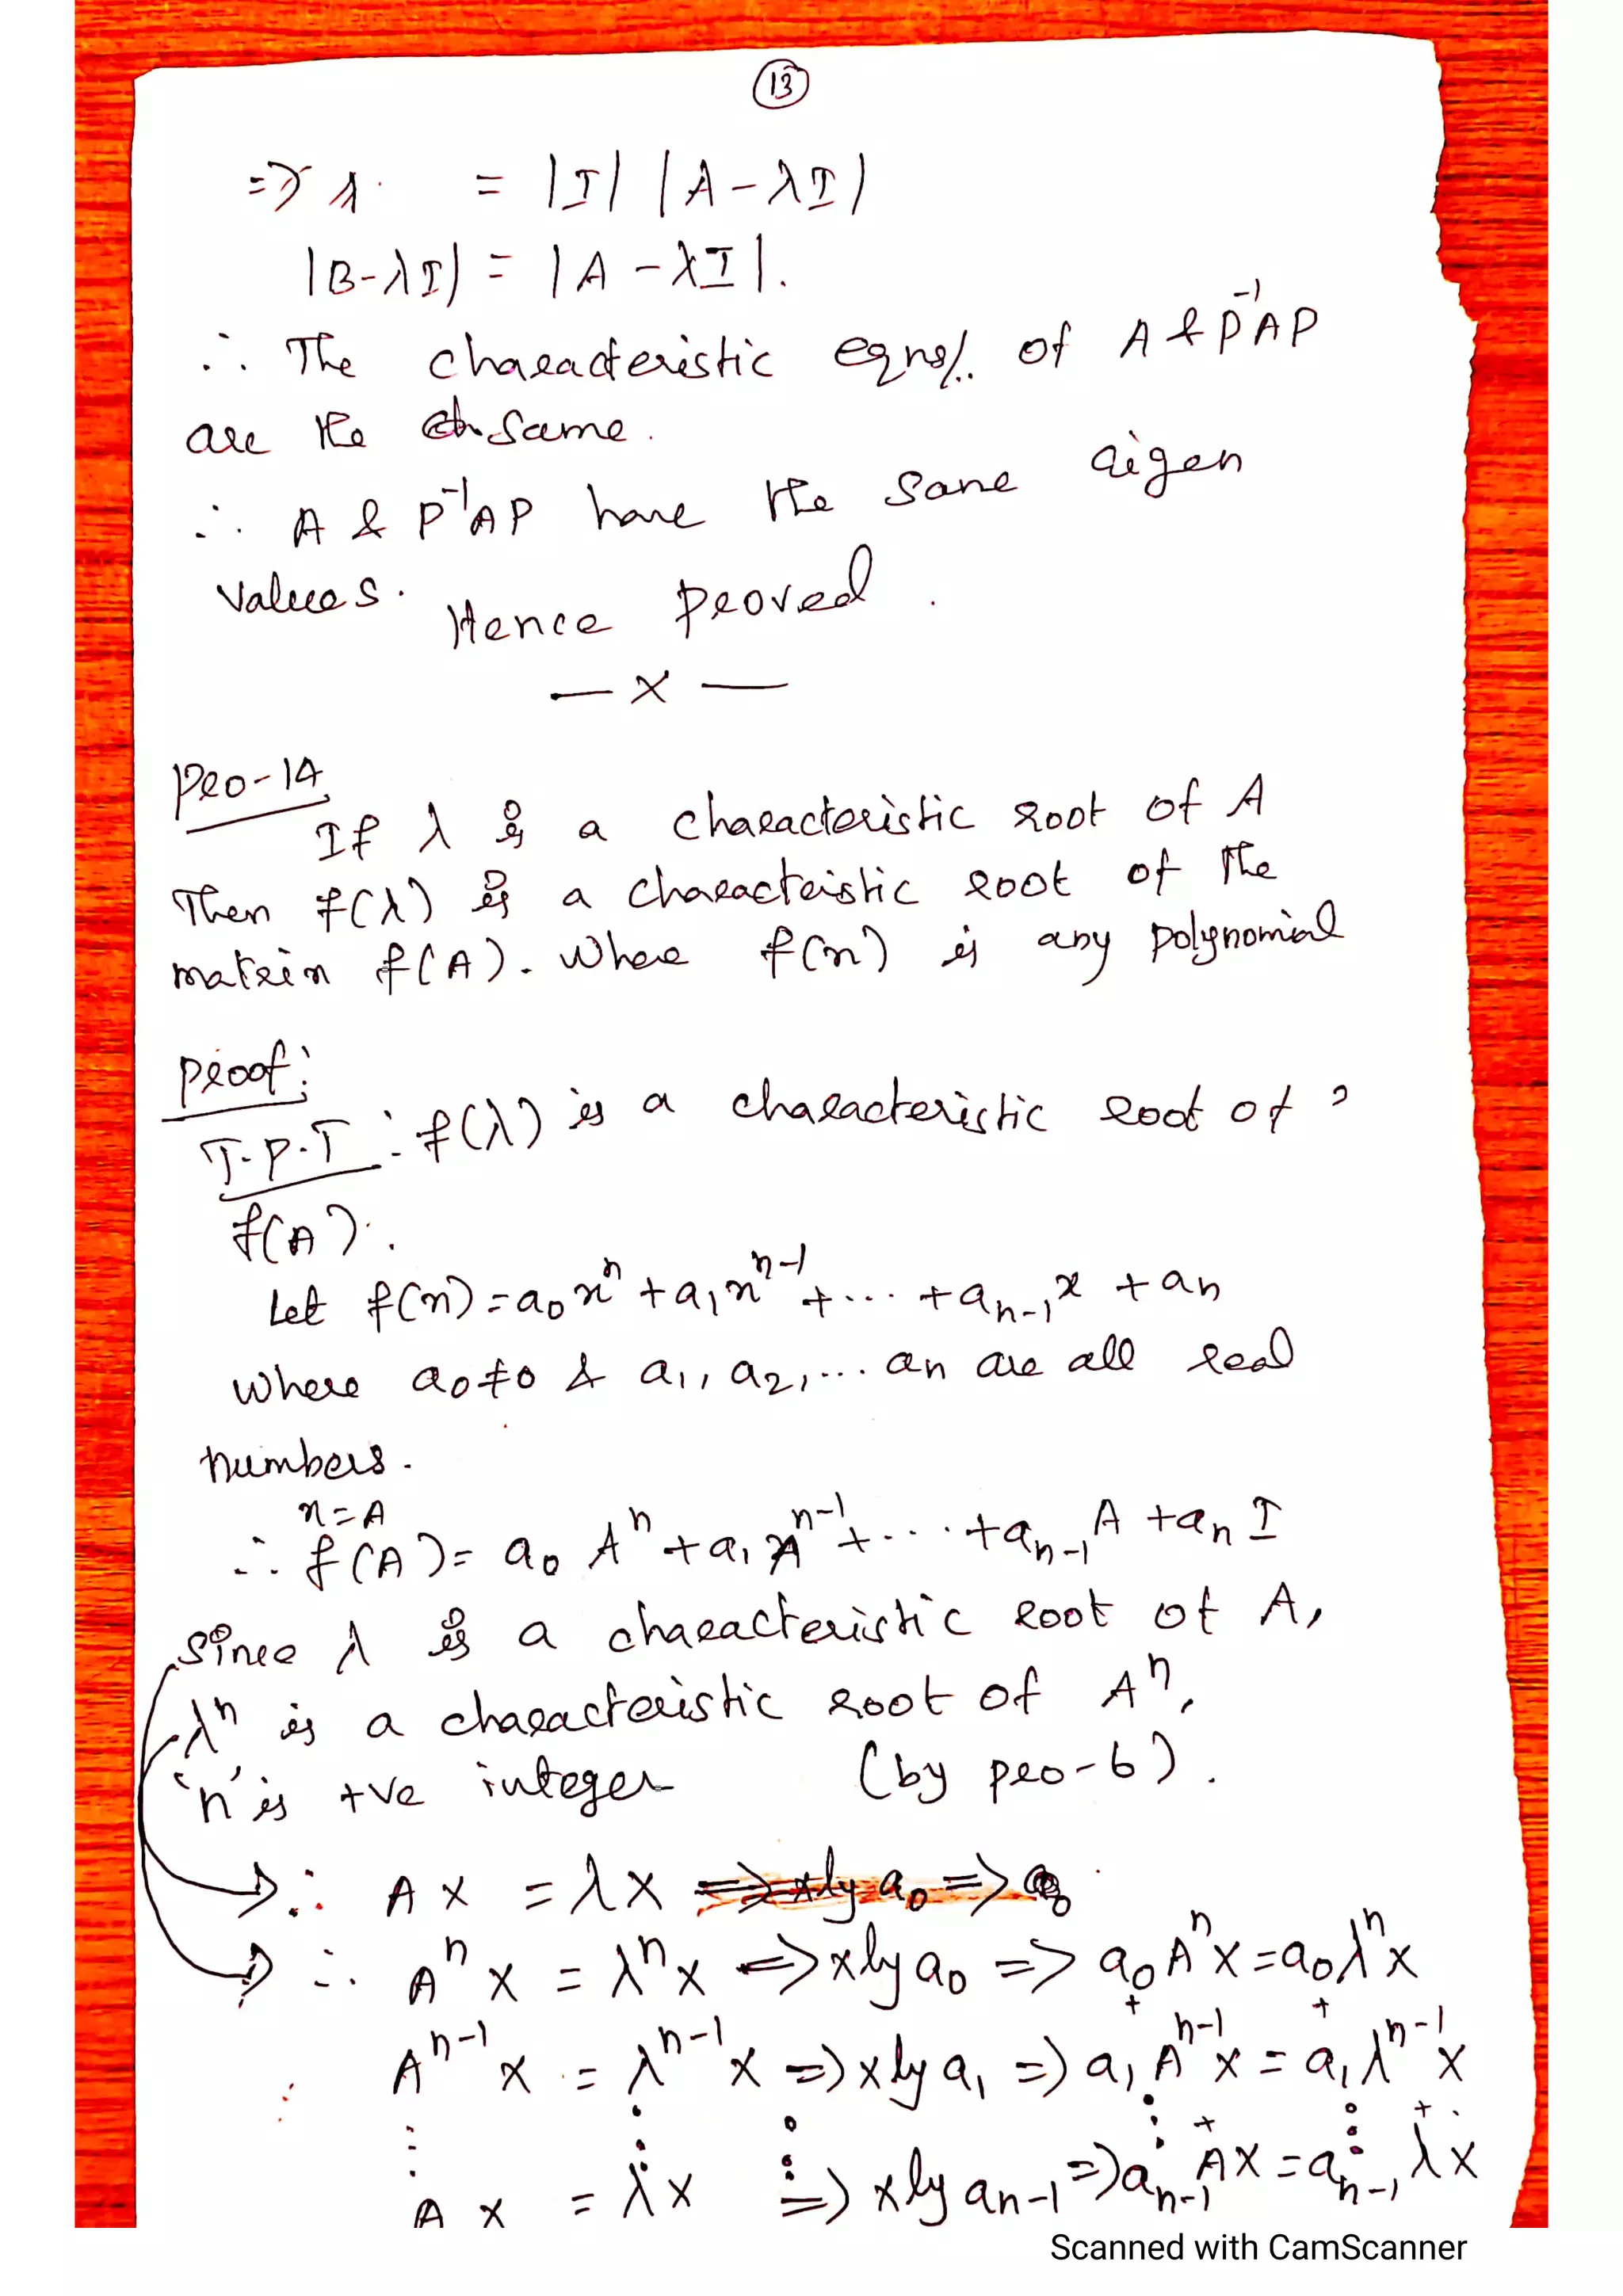 13
=> = |I| |A-λI|
|B-λI| = |A-λI|.
∴ The characteristic eqns/. of A & P⁻¹AP
are the same.
∴ A & P⁻¹AP have the same eigen
values.
Hence proved.
— x —
Pro-14
If λ is a characteristic root of A
Then f(λ) is a characteistic root of the
matrix f(A). Where f(x) is any polynomial
Proof:
T.P.T : f(λ) is a characteristic root of
f(A).
Let f(x) = a₀xⁿ + a₁xⁿ⁻¹ + ... + aₙ₋₁x + aₙ
where a₀≠0 & a₁, a₂, ... aₙ are all real
numbers.
x=A
∴ f(A) = a₀Aⁿ + a₁Aⁿ⁻¹ + .... + aₙ₋₁A + aₙI
since λ is a characteristic root of A,
λⁿ is a characteristic root of Aⁿ,
'n' is +ve integer (by pro-6).
∴ AX = λX => xly a₀ =>
∴ AⁿX = λⁿX => xly a₀ => a₀AⁿX = a₀λⁿX
+ +
Aⁿ⁻¹X = λⁿ⁻¹X => xly a₁ => a₁Aⁿ⁻¹X = a₁λⁿ⁻¹X
⋮ ⋮ ⋮ ⋮ + ⋮ +
AX = λX => xly aₙ₋₁ => aₙ₋₁AX = aₙ₋₁λX
Scanned with CamScanner